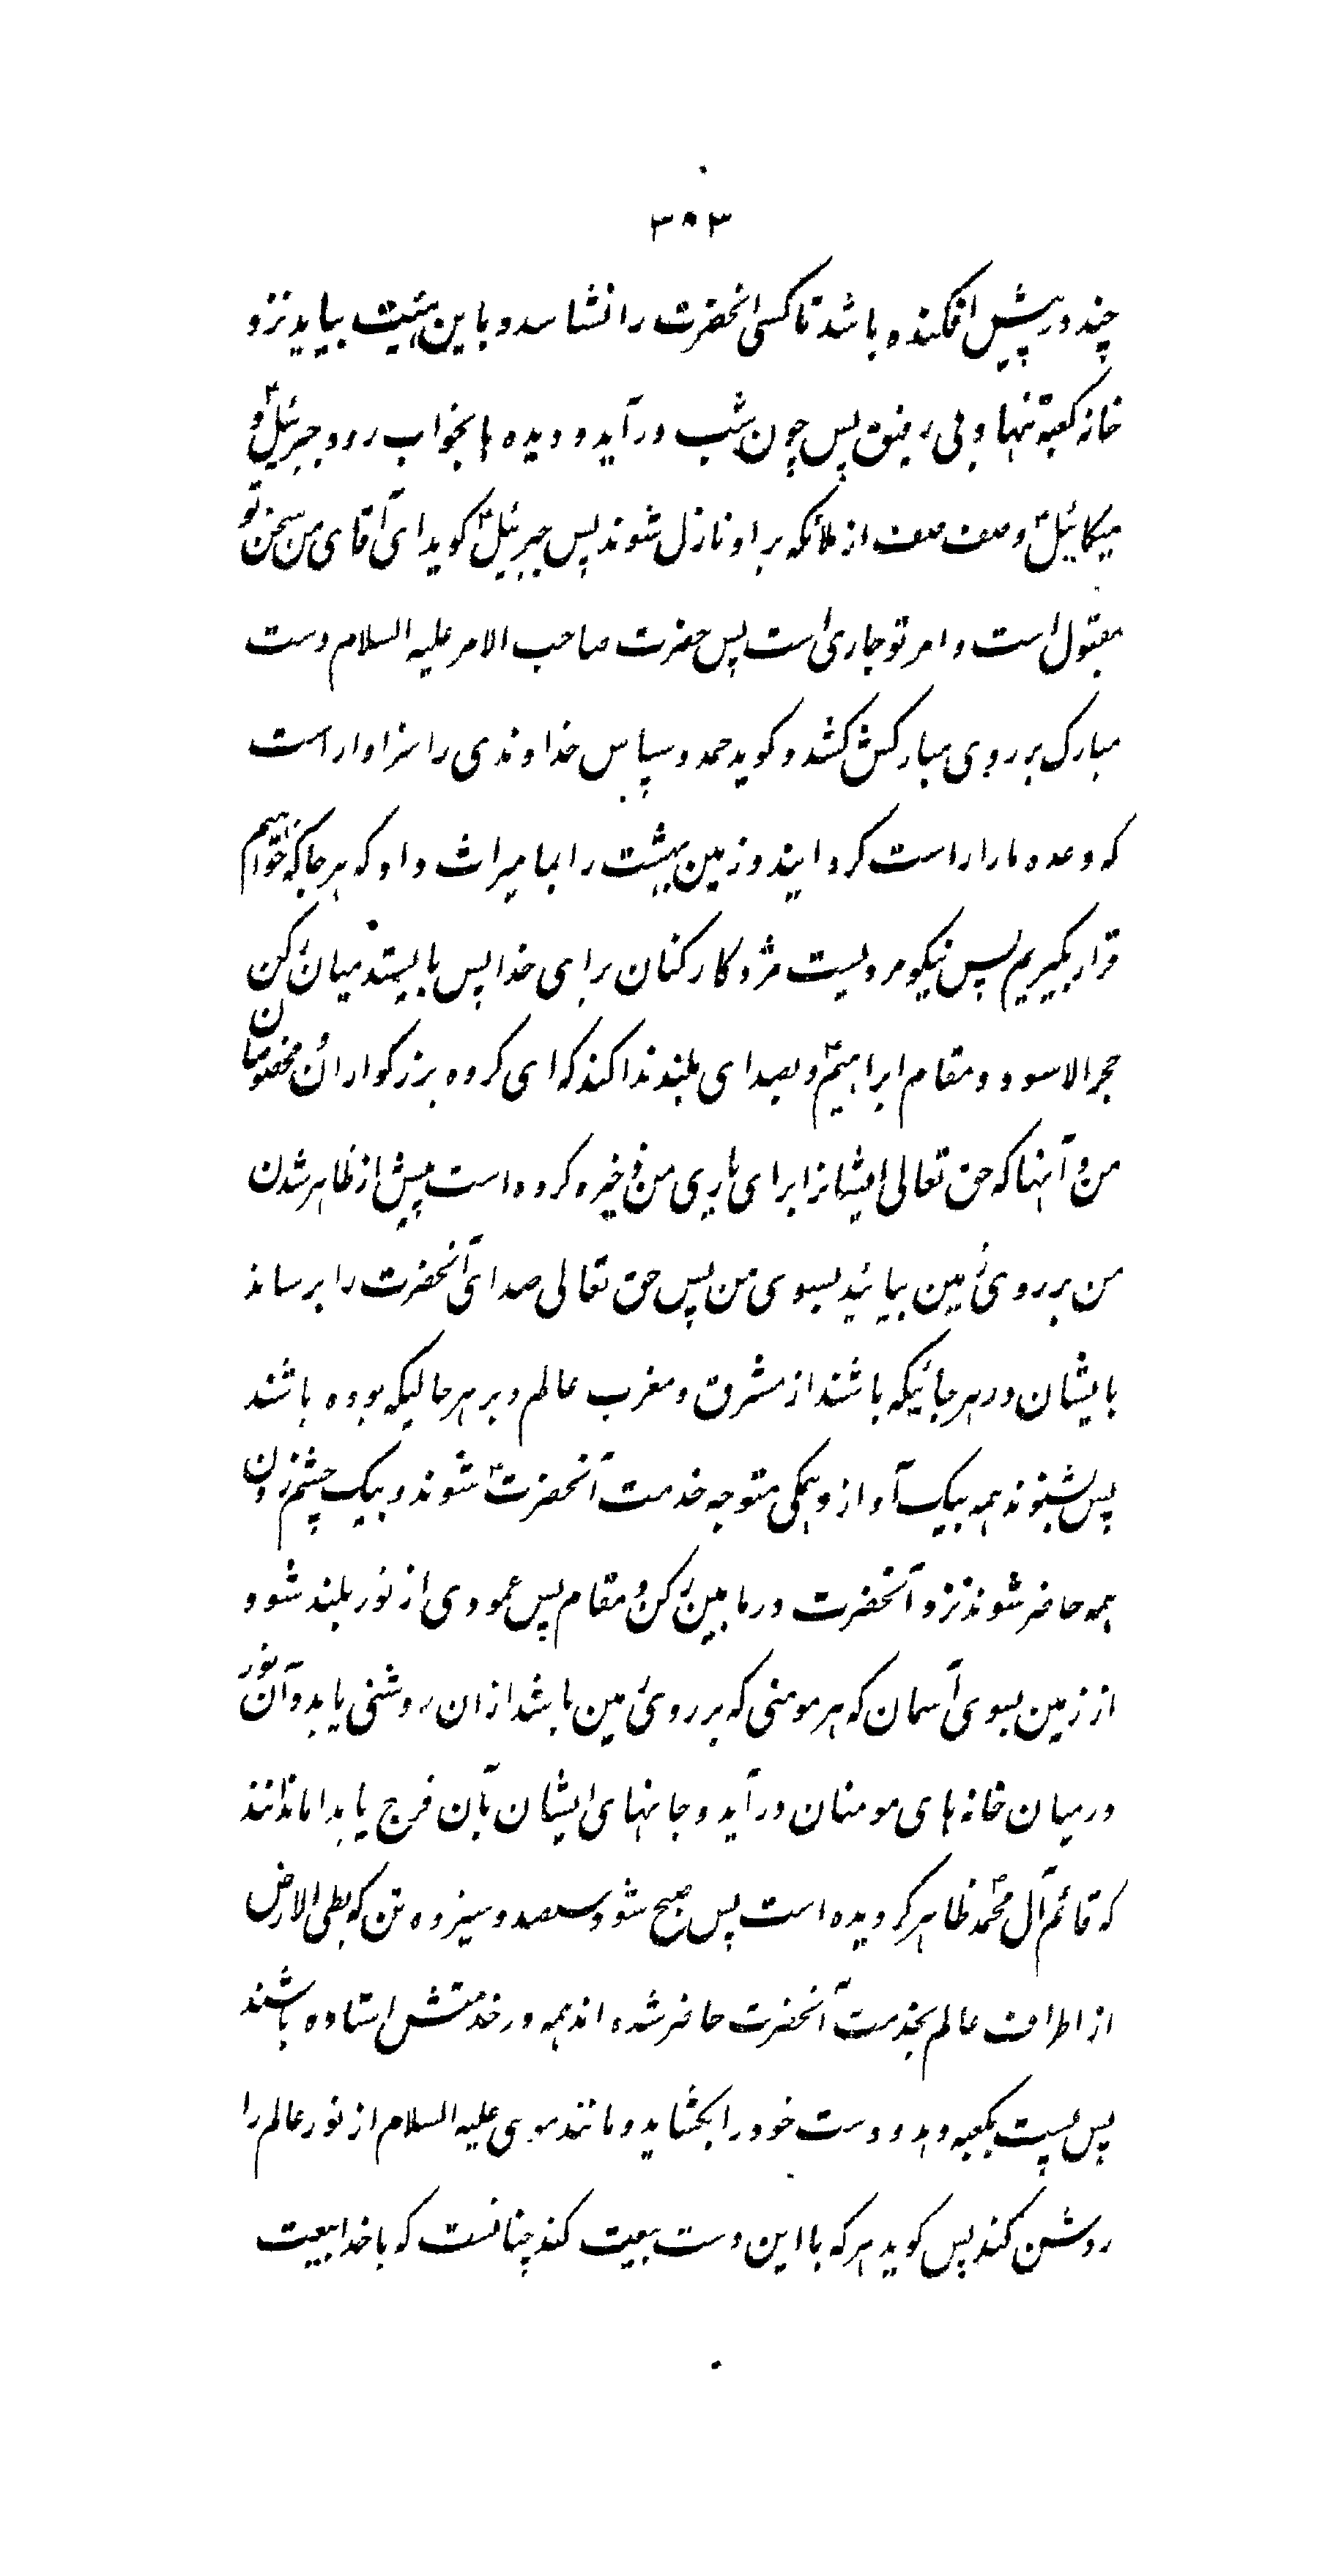 ۳۵۳
چند در پیش افکنده باشد تا کسی انحضرت را نشناسد و باین هیئت بیاید نزد
خانه کعبه تنها و بی رفیق پس چون شب درآید و دیده ها بخواب رود جبرئیل و
میکائیل و صف صف از ملائکه بر او نازل شوند پس جبرئیل گوید ای آقای من سخن تو
مقبول است و امر تو جاری است پس حضرت صاحب الامر علیه السلام دست
مبارک بر روی مبارکش کشد و گوید حمد و سپاس خداوندی را سزاوار است
که وعده ما را راست گردانید و زمین بهشت را بما میراث داد که هر جا که خواهیم
قرار بگیریم پس نیکو مزدیست مزد کارکنان برای خدا پس بایستد میان رکن
حجر الاسود و مقام ابراهیم و بصدای بلند ندا کند که ای گروه بزرگواران و مخصوصان
من و آنها که حق تعالی ایشانرا برای یاری من ذخیره کرده است پیش از ظاهر شدن
من بر روی زمین بیائید بسوی من پس حق تعالی صدای آنحضرت را برساند
بایشان در هر جائیکه باشند از مشرق و مغرب عالم و بر هر حالیکه بوده باشند
پس بشنوند همه بیک آواز و همگی متوجه خدمت آنحضرت شوند و بیک چشم زدن
همه حاضر شوند نزد آنحضرت در مابین رکن و مقام پس عمودی از نور بلند شود
از زمین بسوی آسمان که هر مومنی که بر روی زمین باشد ازان روشنی یابد و آن نور
در میان خانه های مومنان درآید و جانهای ایشان بآن فرح یابد اما ندانند
که قائم آل محمد ظاهر گردیده است پس صبح شود و سیصد و سیزده تن که بطی الارض
از اطراف عالم بخدمت آنحضرت حاضر شده اند همه در خدمتش استاده باشند
پس پشت بکعبه دهد و دست خود را بگشاید و مانند موسی علیه السلام از نور عالم را
روشن کند پس گوید هر که با این دست بیعت کند چنانست که با خدا بیعت